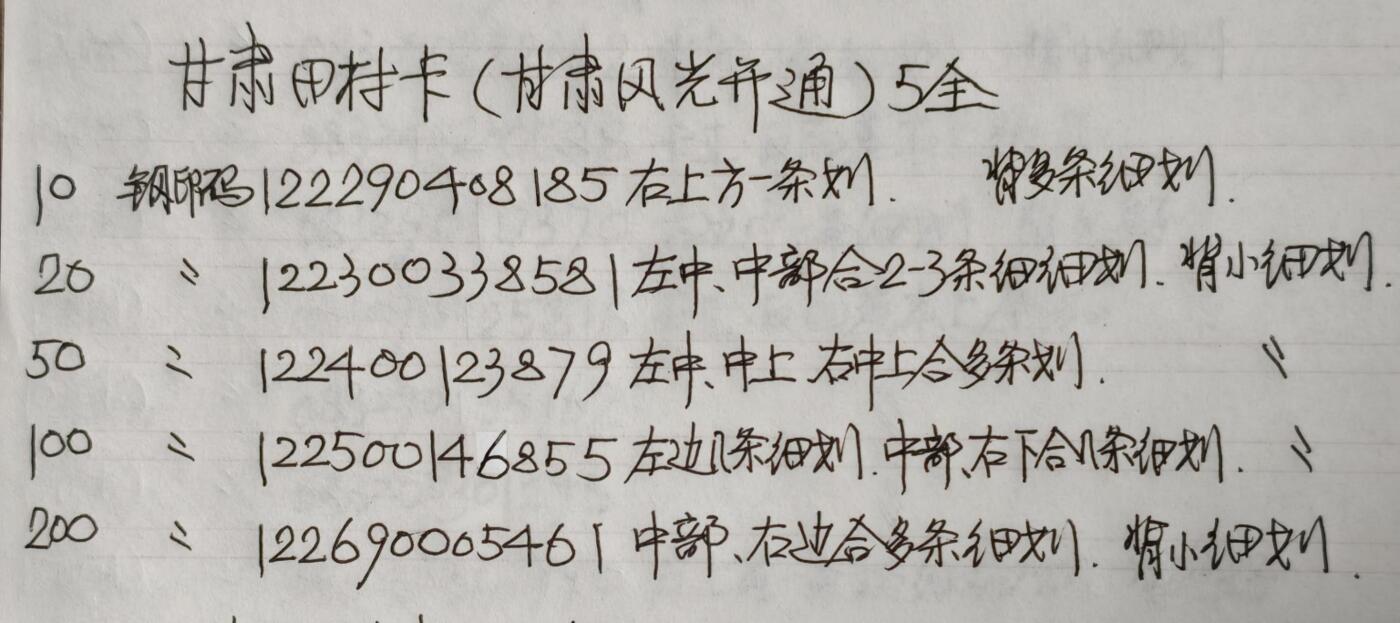 甘肃田村卡(甘肃风光开通)5全
10 钢印码122290408185右上方一条划. 背多条细划.
20 〃 122300338581左中、中部合2-3条细细划. 背小细划.
50 〃 122400123879左中、中上、右中上合多条划. 〃
100 〃 122500146855左边几条细划.中部、右下合几条细划. 〃
200 〃 122690005461中部、右边合多条细划. 背小细划.